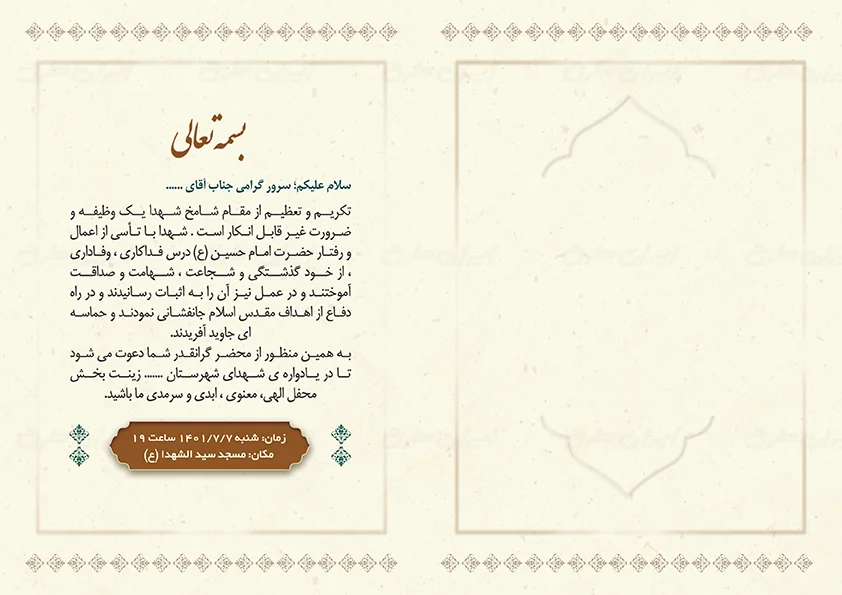 بسمه تعالی
سلام علیکم؛ سرور گرامی جناب آقای ......
تکریم و تعظیم از مقام شامخ شهدا یک وظیفه و
ضرورت غیر قابل انکار است . شهدا با تأسی از اعمال
و رفتار حضرت امام حسین (ع) درس فداکاری ، وفاداری
، از خود گذشتگی و شجاعت ، شهامت و صداقت
آموختند و در عمل نیز آن را به اثبات رسانیدند و در راه
دفاع از اهداف مقدس اسلام جانفشانی نمودند و حماسه
ای جاوید آفریدند.
به همین منظور از محضر گرانقدر شما دعوت می شود
تا در یادواره ی شهدای شهرستان ....... زینت بخش
محفل الهی، معنوی ، ابدی و سرمدی ما باشید.
زمان: شنبه ۱۴۰۱/۷/۷ ساعت ۱۹
مکان: مسجد سید الشهدا (ع)